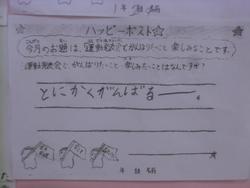 1年 組
☆ハッピーポスト☆
今月のお題は、運動発表会でがんばりたいこと 楽しみなことです。
運動発表会で、がんばりたいこと 楽しみたいことはなんですか？
とにかくがんばるー。
年 組 名前